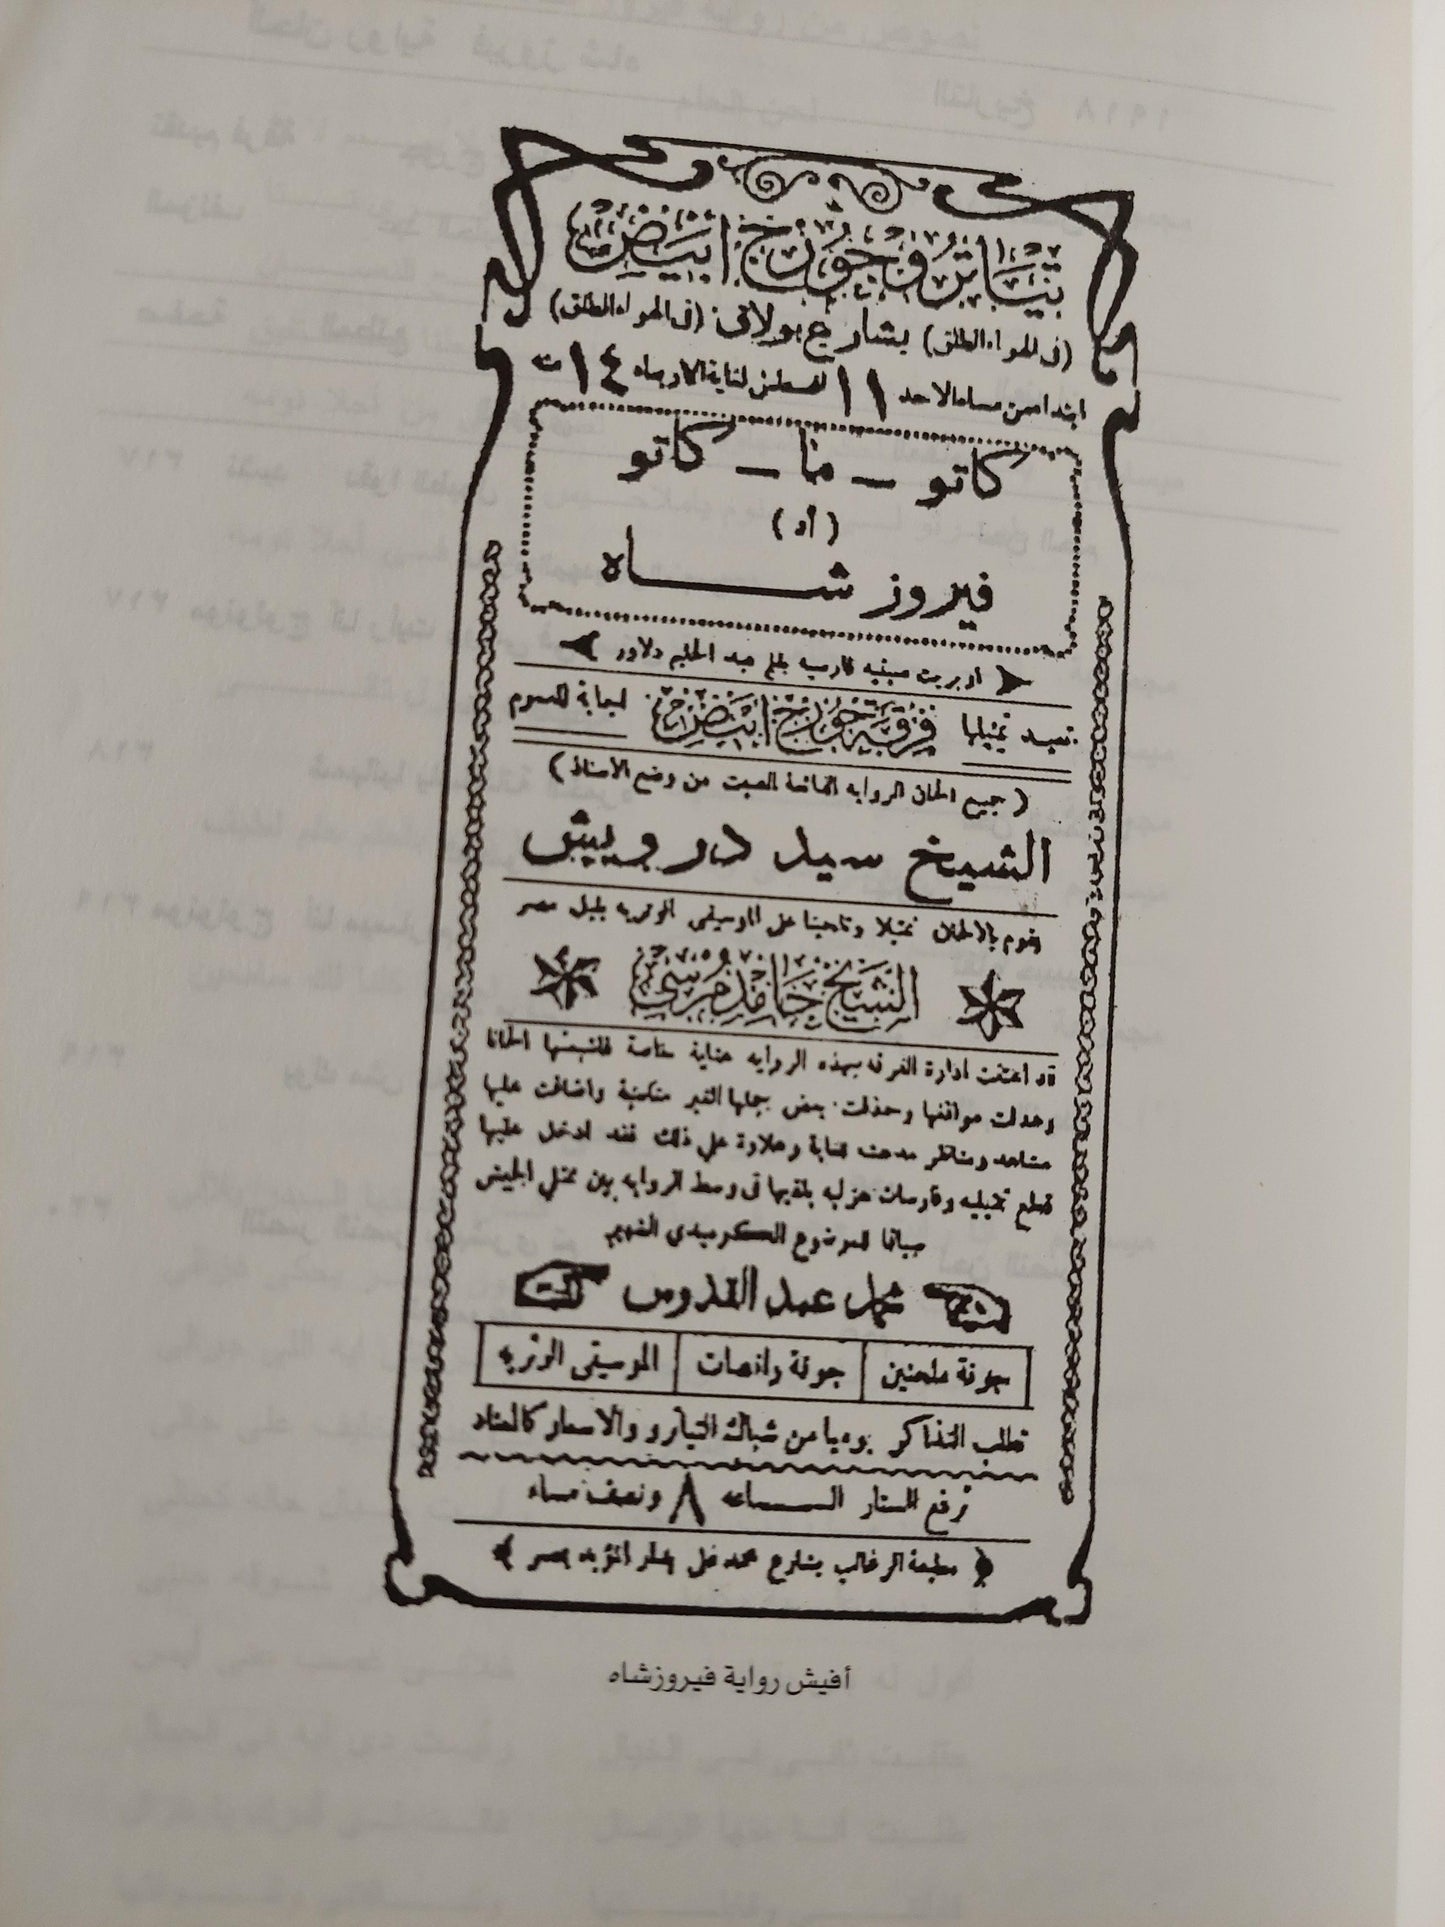 تياترو جورج ابيض
(فى الهواء الطلق) بشارع بولاق (فى الهواء الطلق)
ابتداء من مساء الاحد ١١ اغسطس لغاية الاربعاء ١٤ ت
كاتو - منا - كاتو
(أو)
فيروز شاه
اوبريت فارسيه بقلم عبد الحليم دلاور
تعيد تمثيلها فرقة جورج ابيض اجابة للعموم
(جميع الحان الروايه الذائعة الصيت من وضع الاستاذ)
الشيخ سيد درويش
يقوم بالالحان تمثيلا وتلحينا على الموسيقى الوتريه بلبل مصر
الشيخ حامد مرسي
قد اعتنت ادارة الفرقه بهذه الروايه عناية خاصة الحانا
وعدلت مواقفها وحذفت بعض جملها الغير متناسبة واضافت عليها
مشاهد ومناظر مدهشة للغاية وعلاوة على ذلك فقد ادخل عليها
قطع تمثيليه وفارسات هزليه يلقيها فى وسط الروايه بين ممثلي الجيش
للموضوع الكوميدي الشهير
محمد عبد القدوس
جوقة ملحنين | جوقة راقصات | الموسيقى الوتريه
تطلب التذاكر يوميا من شباك التياترو والاسعار كالمعتاد
ترفع الستار الساعه ٨ ونصف مساء
مطبعة الرغائب بشارع محمد على بدار المؤيد بمصر
أفيش رواية فيروزشاه